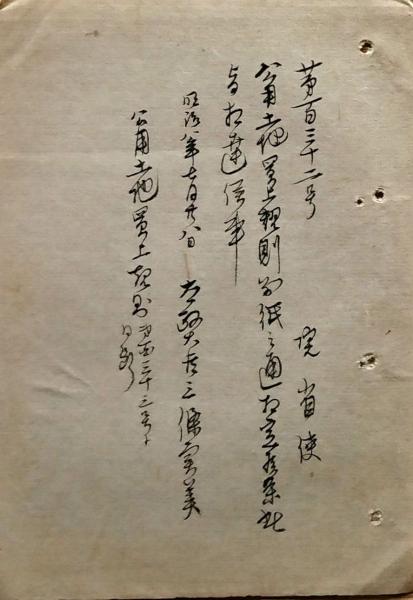 第百三十二号 院省使
公用土地買上規則別紙之通相定候条此
旨相達候事
明治八年七月廿八日 太政大臣三條實美
公用土地買上規則 第百三十三号ト